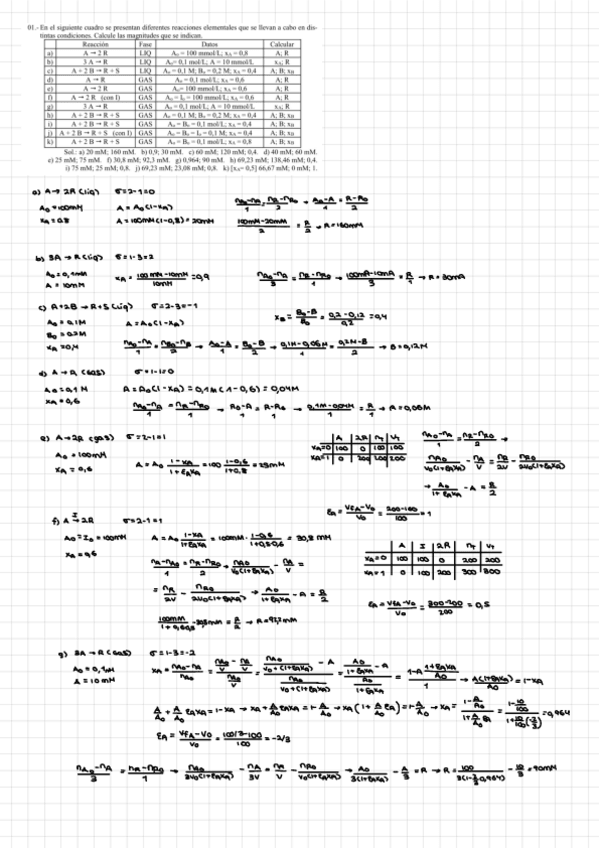 01.- En el siguiente cuadro se presentan diferentes reacciones elementales que se llevan a cabo en dis-
tintas condiciones. Calcular las magnitudes que se indican.
Reacción Fase Datos Calcular
a) A → 2 R LIQ Ao = 100 mmol/L; xA = 0,8 A; R
b) 3 A → R LIQ Ao = 0,1 mol/L; A = 10 mmol/L xA; R
c) A + 2 B → R + S LIQ Ao = 0,1 M; Bo = 0,2 M; xA = 0,4 A; B; xB
d) A → R GAS Ao = 0,1 mol/L; xA = 0,6 A; R
e) A → 2 R GAS Ao = 100 mmol/L; xA = 0,6 A; R
f) A → 2 R (con I) GAS Ao = Io = 100 mmol/L; xA = 0,6 A; R
g) 3 A → R GAS Ao = 0,1 mol/L; A = 10 mmol/L xA; R
h) A + 2 B → R + S GAS Ao = 0,1 M; Bo = 0,2 M; xA = 0,4 A; B; xB
i) A + 2 B → R + S GAS Ao = Bo = 0,1 mol/L; xA = 0,4 A; B; xB
j) A + 2 B → R + S (con I) GAS Ao = Bo = Io = 0,1 M; xA = 0,4 A; B; xB
k) A + 2 B → R + S GAS Ao = Bo = 0,1 mol/L; xA = 0,8 A; B; xB
Sol.: a) 20 mM; 160 mM. b) 0,9; 30 mM. c) 60 mM; 120 mM; 0,4. d) 40 mM; 60 mM.
e) 25 mM; 75 mM. f) 30,8 mM; 92,3 mM. g) 0,964; 90 mM. h) 69,23 mM; 138,46 mM; 0,4.
i) 75 mM; 25 mM; 0,8. j) 69,23 mM; 23,08 mM; 0,8. k) [xA= 0,5] 66,67 mM; 0 mM; 1.
a) A → 2R (liq) σ = 2-1=0
A0 = 100mM A = A0 (1-xA) nA0-nA/1 = nR-nR0/2 → A0-A/1 = R-R0/2
xA = 0,8 A = 100mM (1-0,8) = 20mM 100mM-20mM/2 = R/2 → R = 160mM
b) 3A → R (liq) σ = 1-3 = 2
A0 = 0,1mM xA = 100mM-10mM/10mM = 0,9 nA0-nA/3 = nR-nR0/1 → 100mM-10mM/3 = R/1 → R = 30mM
A = 10mM
c) A+2B → R+S (liq) σ = 2-3 = -1
A0 = 0,1M A = A0 (1-xA) xB = B0-B/B0 = 0,2-0,12/0,2 = 0,4
B0 = 0,2M
xA = 0,4 nA0-nA/1 = nB0-nB/2 → A0-A/1 = B0-B/2 → 0,1M-0,06M/1 = 0,2M-B/2 → B = 0,12M
d) A → R (gas) σ = 1-1=0
A0 = 0,1 M A = A0 (1-xA) = 0,1M (1-0,6) = 0,04M
xA = 0,6 nA0-nA/1 = nR-nR0/1 → R0-A/1 = R-R0/1 → 0,1M-0,04M/1 = R/1 → R = 0,06M
e) A → 2R (gas) σ = 2-1=1
A0 = 100mM A = A0 1-xA/1+εAxA = 100 1-0,6/1+0,6 = 25mM
xA = 0,6
A 2R nT VT
xA=0 100 0 100 100
xA=1 0 200 200 200
nA0-nA/1 = nR-nR0/2 →
nA0/V0(1+εAxA) - nA/V = nR/2V - nR0/2V0(1+εAxA)
→ A0/1+εAxA - A = R/2
εA = VFA-V0/V0 = 200-100/100 = 1
f) A →I 2R σ = 2-1 = 1
A0 = I0 = 100mM A = A0 1-xA/1+εAxA = 100mM · 1-0,6/1+0,5·0,6 = 30,8 mM
xA = 0,6
A I 2R nT VT
xA=0 100 100 0 200 200
xA=1 0 100 200 300 300
nA-nA0/1 = nR-nR0/2 → nA0/V0(1+εAxA) - nA/V =
= nR/2V - nR0/2V0(1+εAxA) → A0/1+εAxA - A = R/2
εA = VFA-V0/V0 = 300-200/200 = 0,5
→ R = 92,3 mM
g) 3A → R (gas) σ = 1-3 = -2
A0 = 0,1M
A = 10 mM
→ A(1+εAxA)/A0 = 1-xA
A/A0 + A/A0 εAxA = 1-xA → xA + A/A0 εAxA = 1- A/A0 → xA (1+ A/A0 εA) = 1- A/A0 → xA = 1-A/A0 / 1+A/A0 εA = 1-10/100 / 1+10/100(-2/3) = 0,964
εA = VFA-V0/V0 = 100/3-100/100 = -2/3
nA0-nA/3 = nR-nR0/1 → nA0/3V0(1+εAxA) - nA/3V = nR/V - nR0/V0(1+εAxA) → A0/3(1+εAxA) - A/3 = R → R = 100/3(1-2/3·0,964) - 10/3 = 90mM